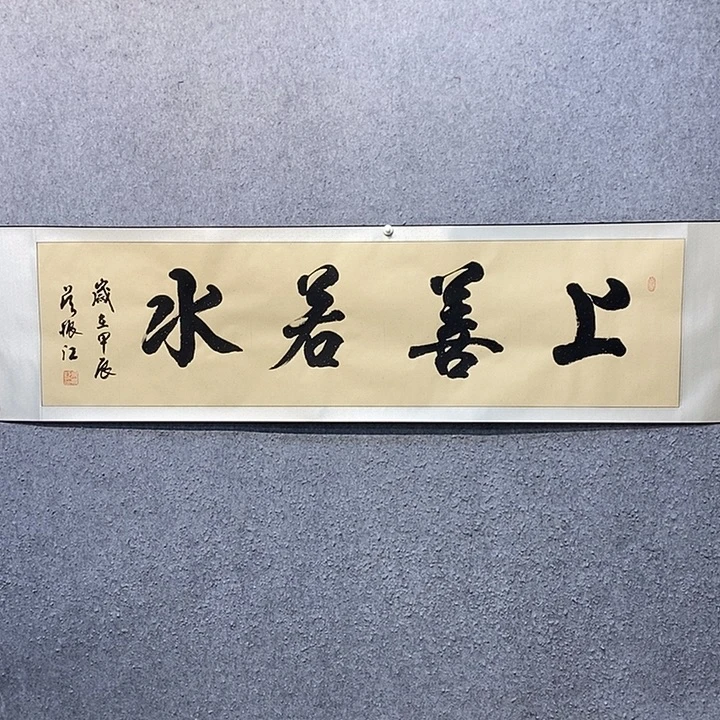 上善若水
歲在甲辰
振江